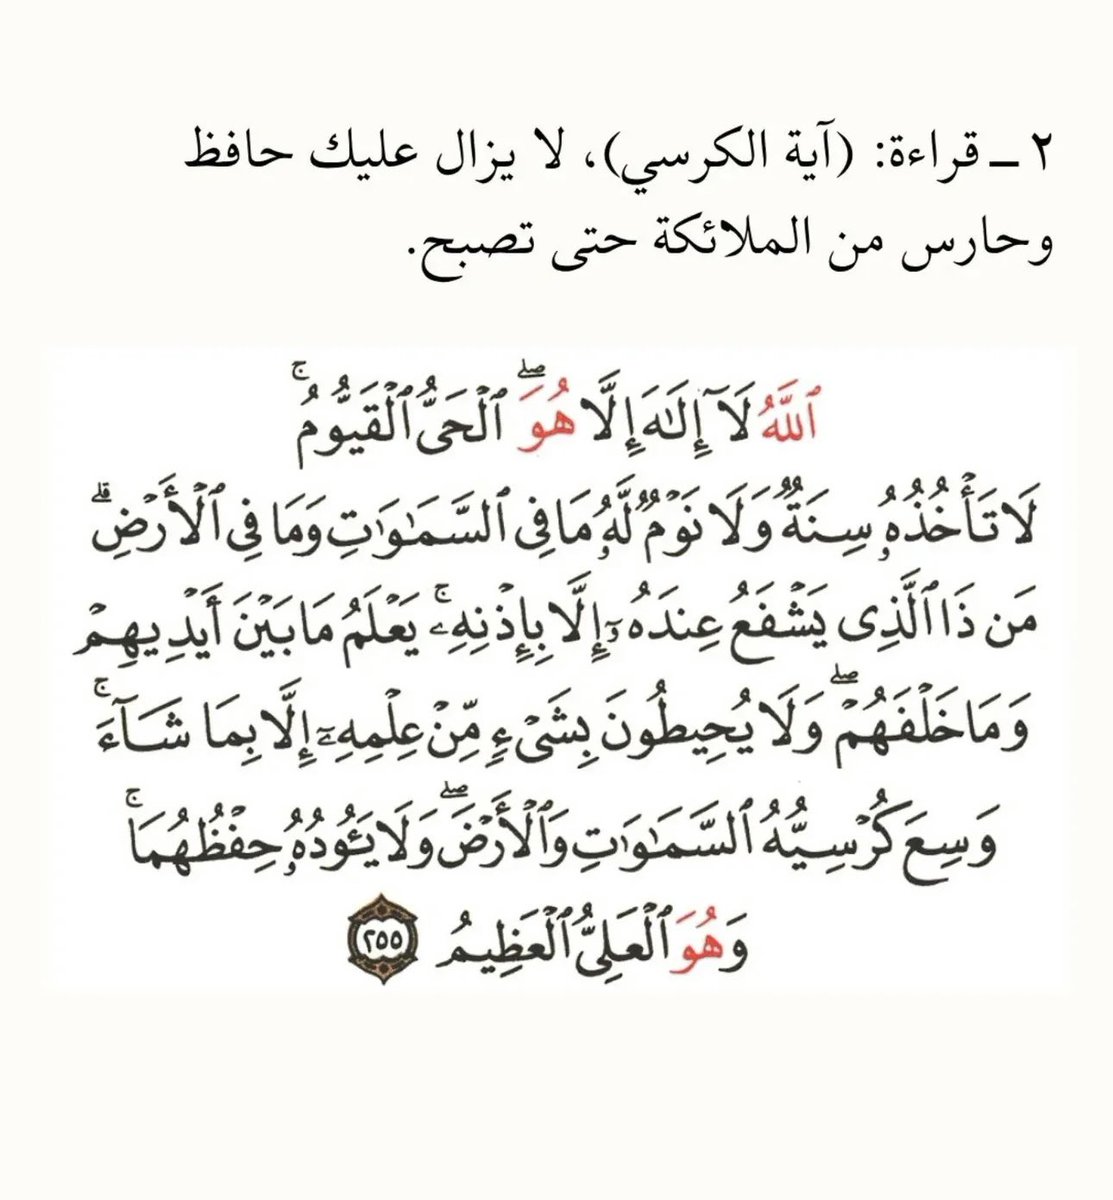 ٢ ــ قراءة: (آية الكرسي)، لا يزال عليك حافظ
وحارس من الملائكة حتى تصبح.
ٱللَّهُ لَآ إِلَٰهَ إِلَّا هُوَ ۖ ٱلْحَىُّ ٱلْقَيُّومُ ۚ
لَا تَأْخُذُهُۥ سِنَةٌ وَلَا نَوْمٌ ۚ لَّهُۥ مَا فِى ٱلسَّمَٰوَٰتِ وَمَا فِى ٱلْأَرْضِ ۗ
مَن ذَا ٱلَّذِى يَشْفَعُ عِندَهُۥٓ إِلَّا بِإِذْنِهِۦ ۚ يَعْلَمُ مَا بَيْنَ أَيْدِيهِمْ
وَمَا خَلْفَهُمْ ۖ وَلَا يُحِيطُونَ بِشَىْءٍ مِّنْ عِلْمِهِۦٓ إِلَّا بِمَا شَآءَ ۚ
وَسِعَ كُرْسِيُّهُ ٱلسَّمَٰوَٰتِ وَٱلْأَرْضَ ۖ وَلَا يَـُٔودُهُۥ حِفْظُهُمَا ۚ
وَهُوَ ٱلْعَلِىُّ ٱلْعَظِيمُ ٢٥٥